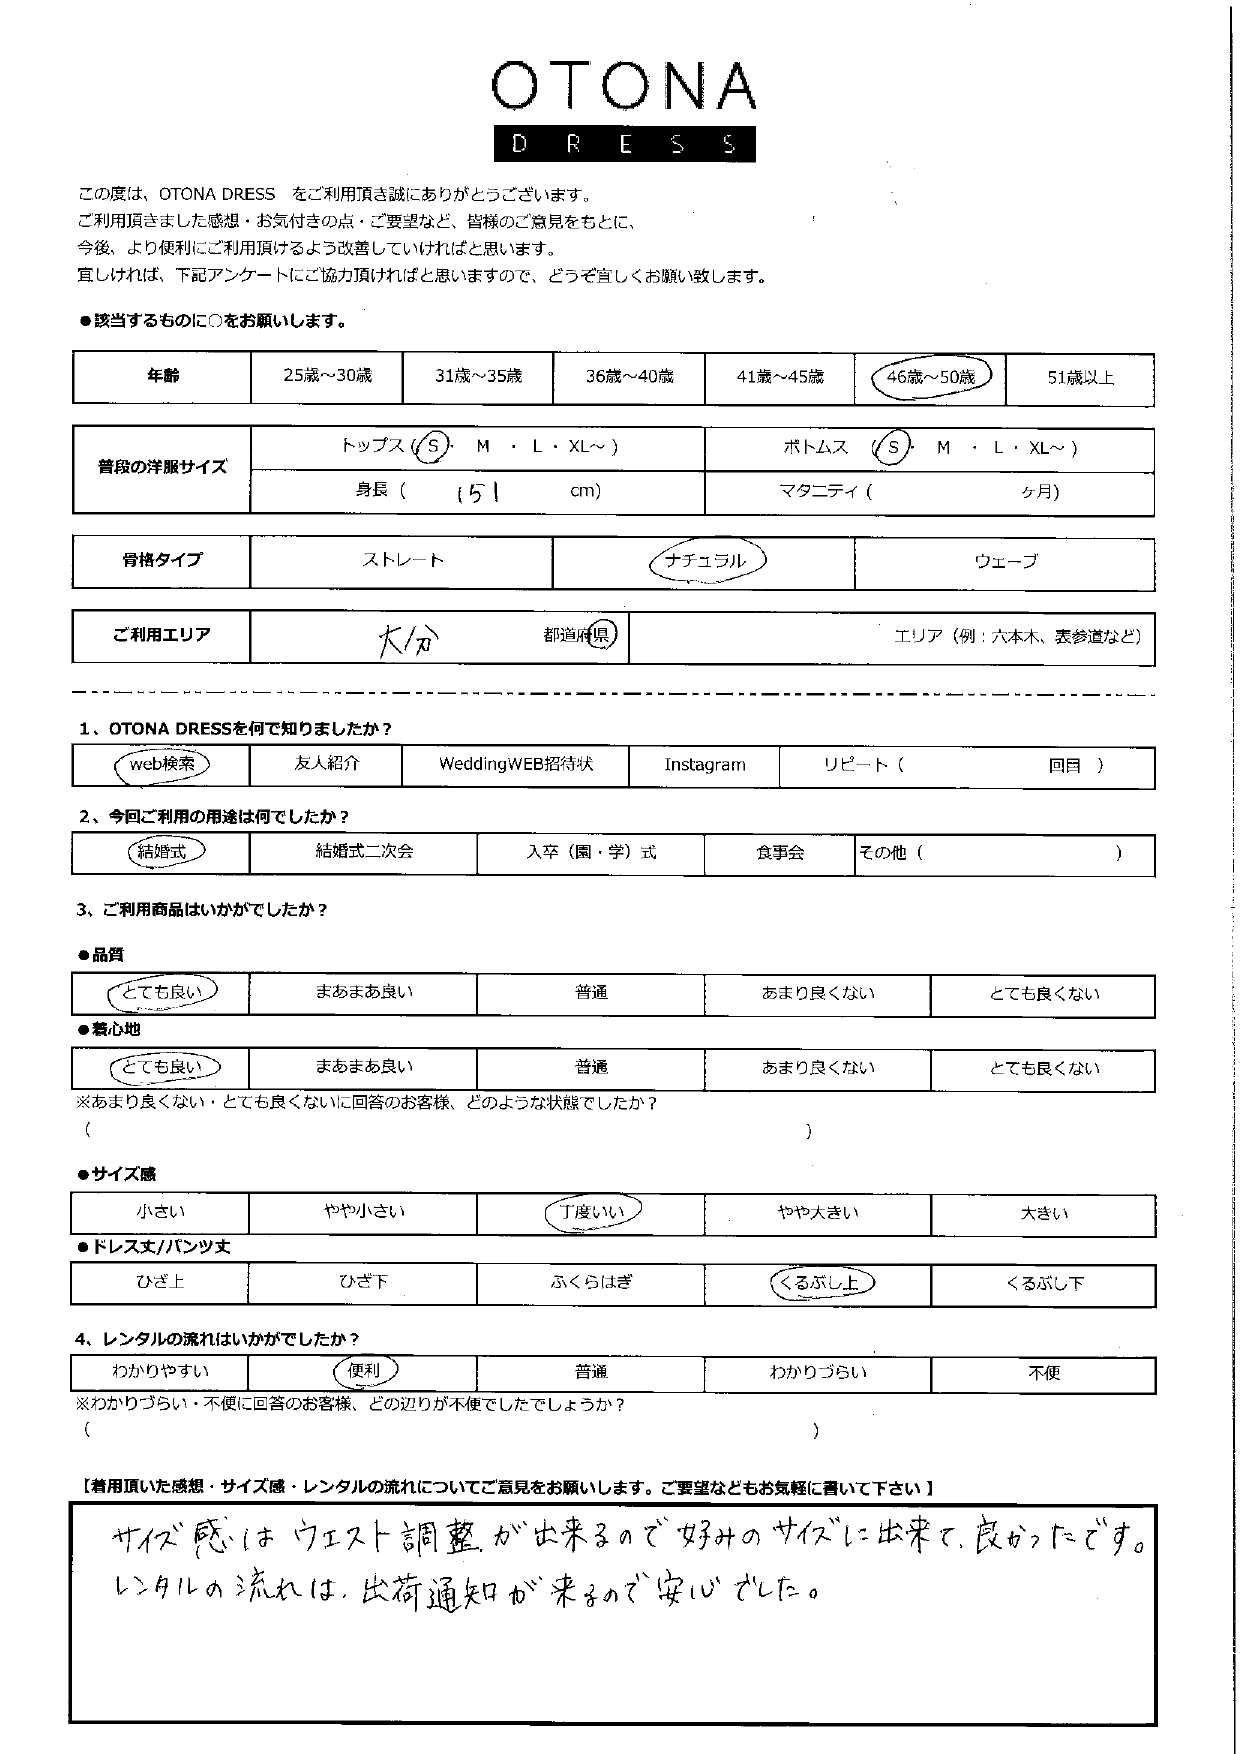 OTONA
DRESS
この度は、OTONA DRESS　をご利用頂き誠にありがとうございます。
ご利用頂きました感想・お気付きの点・ご要望など、皆様のご意見をもとに、
今後、より便利にご利用頂けるよう改善していければと思います。
宜しければ、下記アンケートにご協力頂ければと思いますので、どうぞ宜しくお願い致します。
●該当するものに○をお願いします。
年齢 25歳～30歳 31歳～35歳 36歳～40歳 41歳～45歳 46歳～50歳 51歳以上
普段の洋服サイズ トップス（S・ M ・ L ・ XL～ ) ボトムス （S・ M ・ L ・ XL～ )
身長（ 151 cm) マタニティ（ ヶ月)
骨格タイプ ストレート ナチュラル ウェーブ
ご利用エリア 大分 都道府県 エリア（例：六本木、表参道など）
1、OTONA DRESSを何で知りましたか？
web検索 友人紹介 WeddingWEB招待状 Instagram リピート（ 回目 ）
2、今回ご利用の用途は何でしたか？
結婚式 結婚式二次会 入卒（園・学）式 食事会 その他（ ）
3、ご利用商品はいかがでしたか？
●品質
とても良い まあまあ良い 普通 あまり良くない とても良くない
●着心地
とても良い まあまあ良い 普通 あまり良くない とても良くない
※あまり良くない・とても良くないに回答のお客様、どのような状態でしたか？
（ ）
●サイズ感
小さい やや小さい 丁度いい やや大きい 大きい
●ドレス丈/パンツ丈
ひざ上 ひざ下 ふくらはぎ くるぶし上 くるぶし下
4、レンタルの流れはいかがでしたか？
わかりやすい 便利 普通 わかりづらい 不便
※わかりづらい・不便に回答のお客様、どの辺りが不便でしたでしょうか？
（ ）
【着用頂いた感想・サイズ感・レンタルの流れについてご意見をお願いします。ご要望などもお気軽に書いて下さい】
サイズ感はウエスト調整が出来るので好みのサイズに出来て、良かったです。
レンタルの流れは、出荷通知が来るので安心でした。